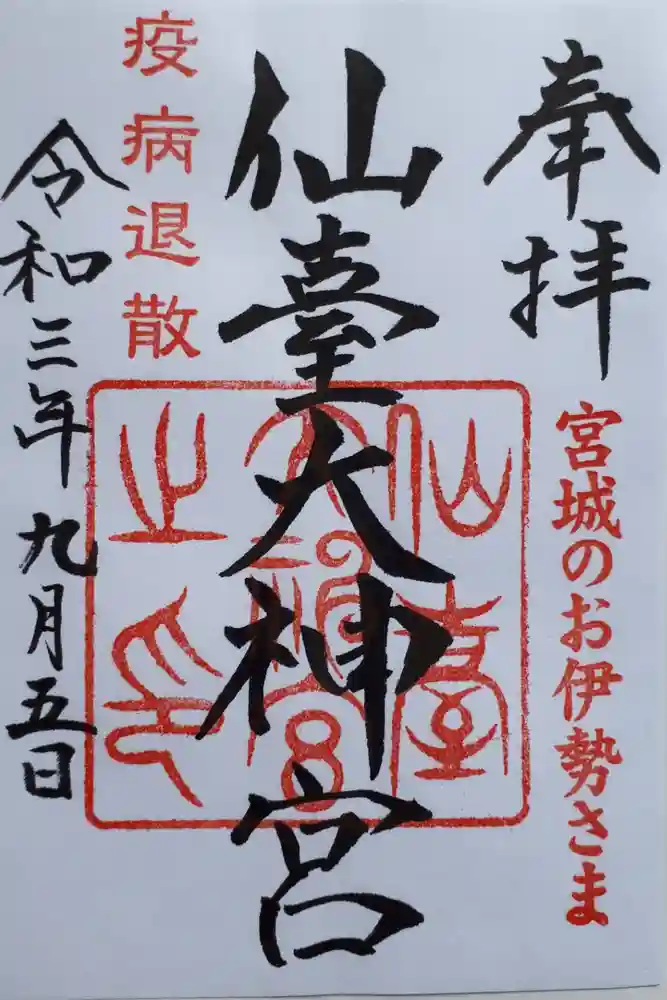 奉拝
宮城のお伊勢さま
仙臺大神宮
仙臺大神宮之印
疫病退散
令和三年九月五日